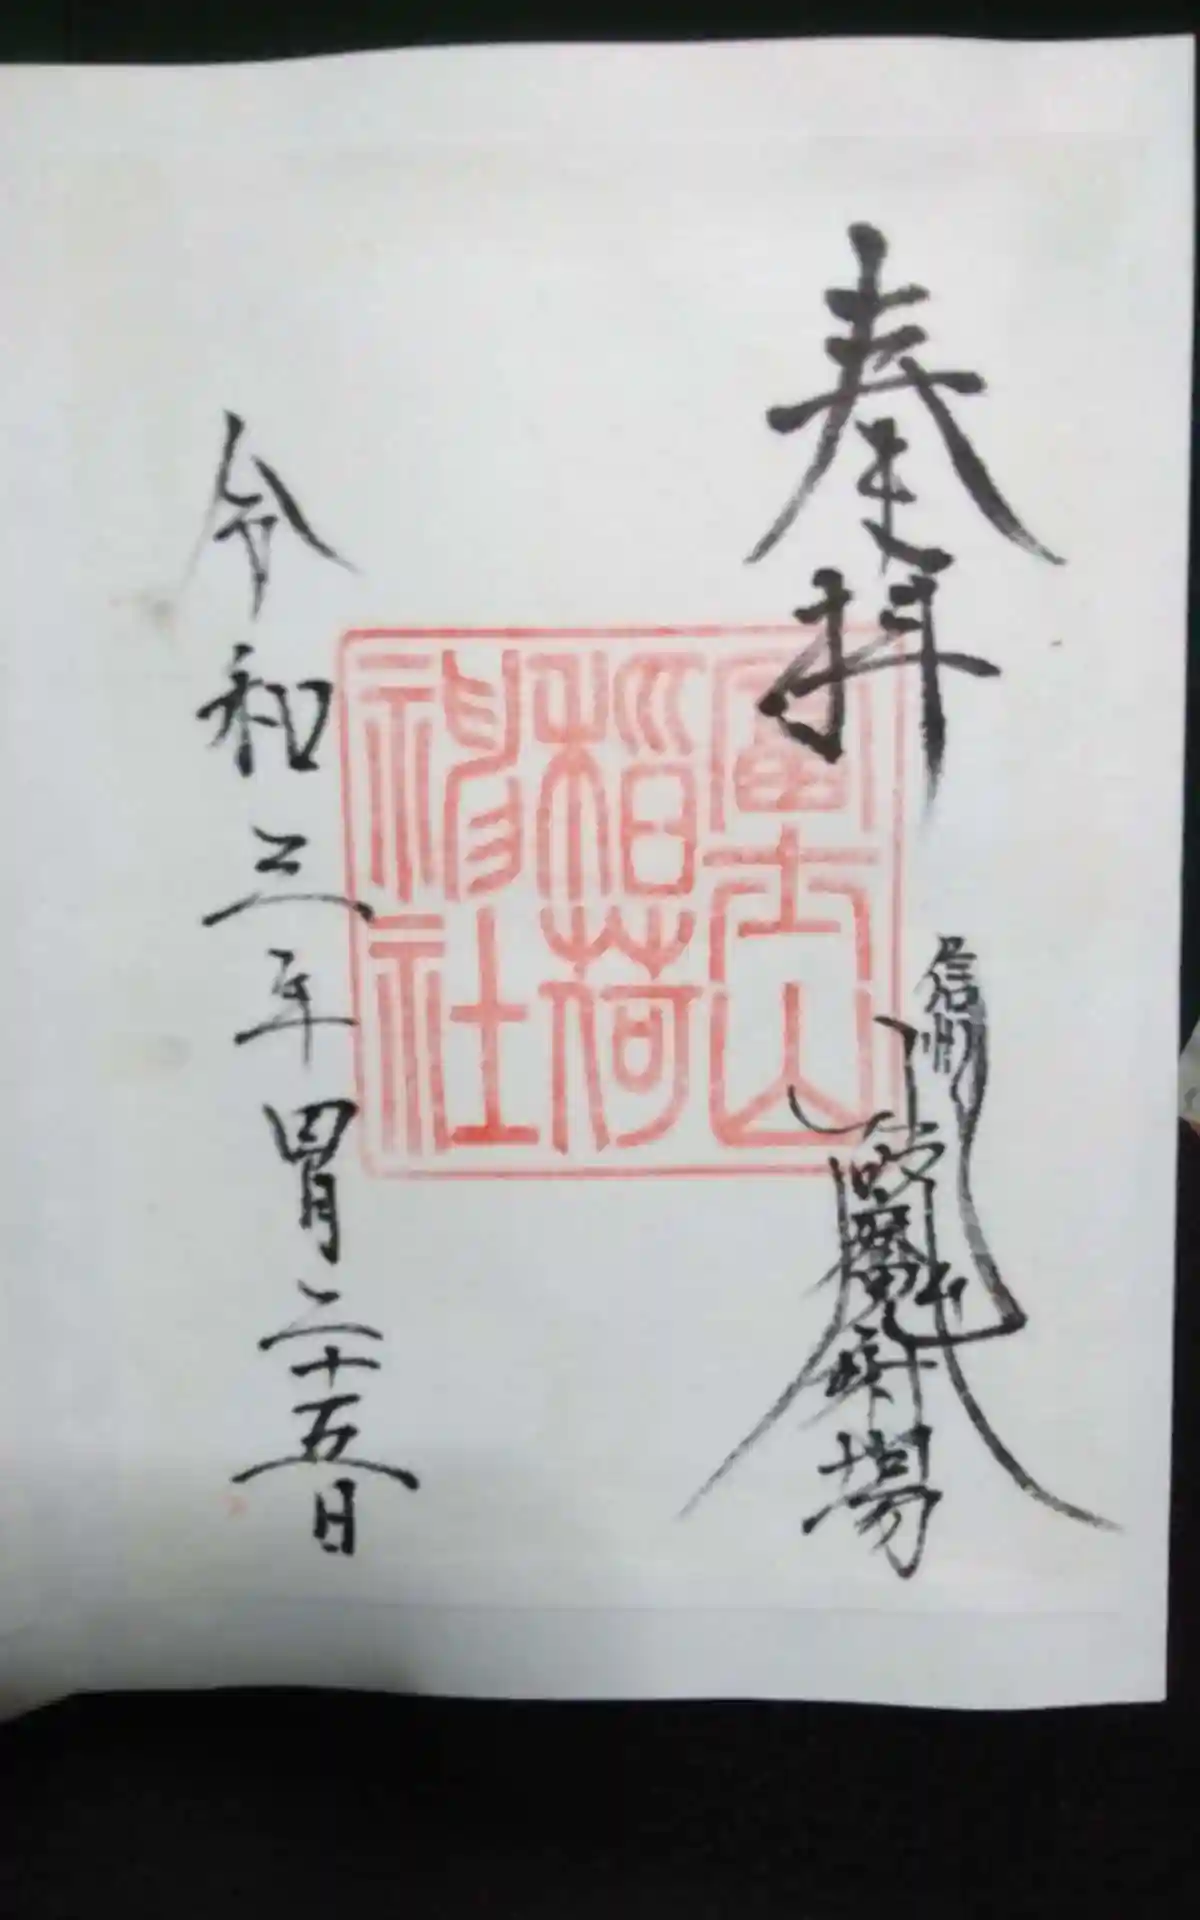 奉拝
信州
場
富士山
稲荷
神社
令和三年四月二十五日